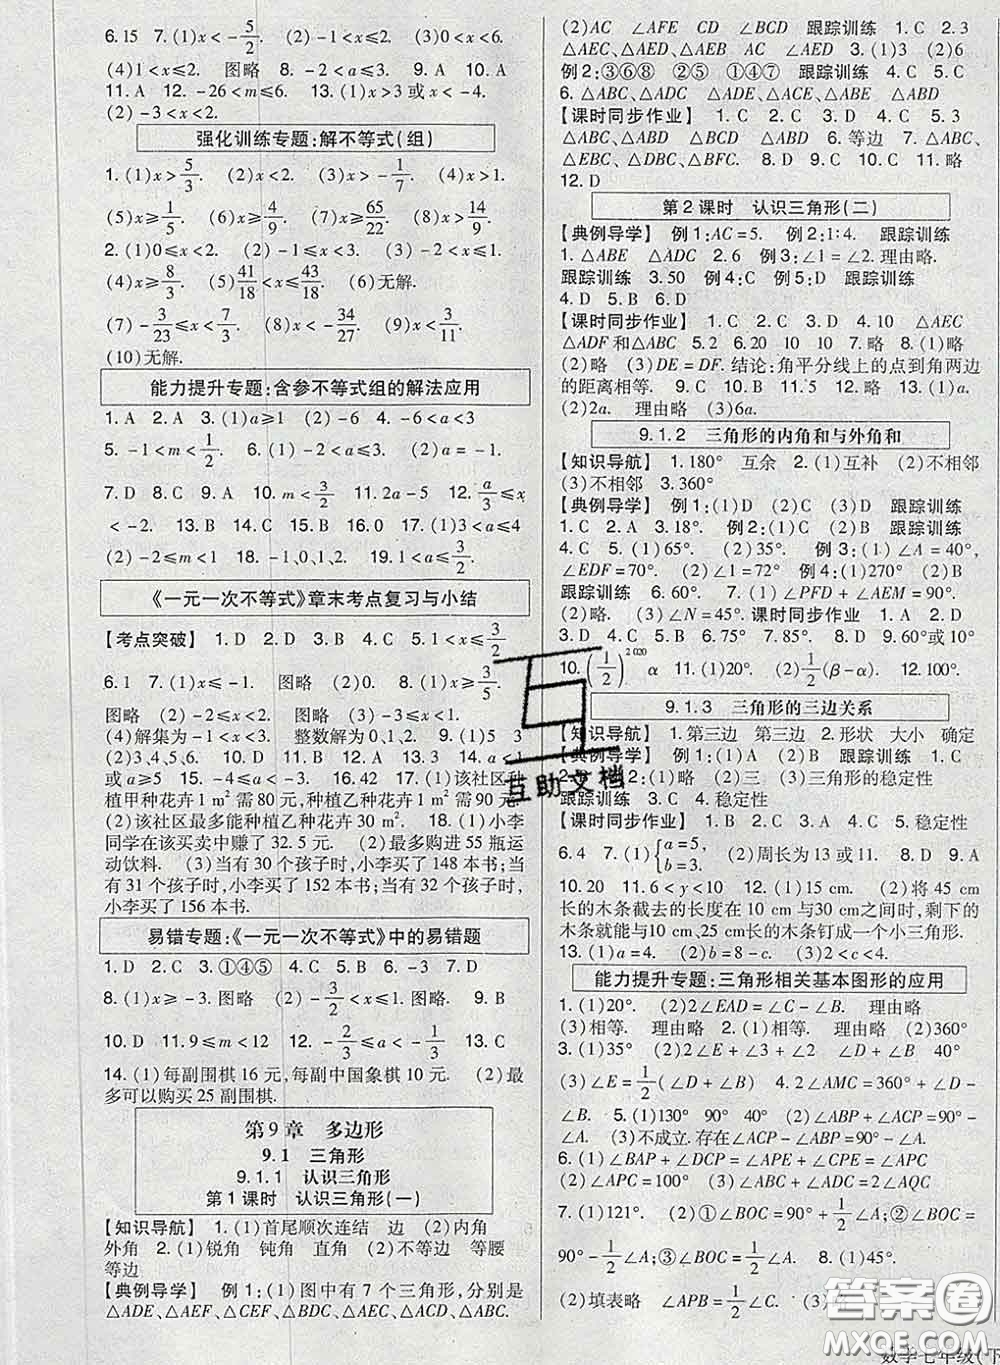 6.15 7.(1)x<-5/2. (2)-1<x<2. (3)0<x<6.
(4)1<x≤2. 图略 8.-2<a≤3. 9.A 10.A
11.A 12.-26<m≤6. 13.(1)x>3或x<-4.
(2)-3<x<2.
强化训练专题:解不等式(组)
1.(1)x>5/3. (2)x<2. (3)x>-1/7. (4)x>1.
(5)x≥1/5. (6)x≥4/9. (7)x≥65/22. (8)x>14/9.
2.(1)0≤x<2. (2)0<x<2. (3)1<x<4.
(4)x≥8/3. (5)41/18<x≤43/18. (6)无解.
(7)-3/23≤x<7/3. (8)x<-34/27. (9)x<3/11.
(10)无解.
能力提升专题:含参不等式组的解法应用
1.A 2.A 3.(1)a≥1 (2)-6 4.-6<a<3
5.-1<m<1/2. 6.(1)-2<a≤3. (2)a=-1.
7.D 8.C 9.A 10.m<3/2 11.2a-5 12.a/3≤x
<-2. 13.C 14.B 15.B 16.C 17.(1)3<a≤4
(2)-2≤m<1 18.-1,0,1,2. 19.1<a≤3/2.
《一元一次不等式》章末考点复习与小结
【考点突破】 1.D 2.D 3.B 4.C 5.1<x≤3/2
6.1 7.(1)x≤-1. 图略 (2)0. 8.(1)x≥3/5.
图略 (2)-2≤x<1. 图略 (3)-1<x≤2. 图略
(4)解集为-1<x<3. 整数解为0,1,2. 9.(1)5 3
(2)3,5,6. 10.D 11.C 12.D 13.A 14.D 15.1
或a≥5 16.-1≤x<2 17.42. 17.(1)该社区种
植甲种花卉1 m²需80元,种植乙种花卉1 m²需90元.
(2)该社区最多能种植乙种花卉30 m². 18.(1)小李
同学在该买卖中赚了32.5元. (2)最多可买55瓶运
动饮料. (3)当有30个孩子时,小李买了148本书;当
有31个孩子时,小李买了152本书;当有32个孩子时,
小李买了156本书.
易错专题:《一元一次不等式》中的易错题
1.D 2.C 3.①④⑤ 4.D 5.-6 6.-2 7.D
8.(1)x≤-3. 图略 (2)-3/2≤x<3. 图略 9.B
10.D 11.9≤m<12 12.B 13.-2/3≤a≤-1/3
14.(1)每副围棋16元,每副中国象棋10元. (2)最
多可以购买25副围棋.
第9章 多边形
9.1 三角形
9.1.1 认识三角形
第1课时 认识三角形(一)
【知识导航】 1.(1)首尾顺次连结 边 (2)内角
外角 2.(1)锐角 钝角 直角 (2)不等边 等腰
等边
【典例导学】 例1:(1)图中有7个三角形,分别是
△ADE,△AEF,△CEF,△BDC,△AEC,△ADC,△ABC.
(2)AC ∠AFE CD ∠BCD 跟踪训练 1.C 2.3
△AEC,△AED,△AEB AC ∠AED 3.(1)3 (2)6
例2:③⑥⑧ ②⑤ ①④⑦ 跟踪训练 4.C 5.C
6.△ABC,△ADC △ADE,△ACE,△ABE △ABD
【课时同步作业】 1.C 2.C 3.B 4.C 5.3
△ABC,△ABD △BCD △ABD 6.等边 7.△ABC,
△EBC,△DBC,△BFC. 8.D 9.C 10.C 11.略
12.D
第2课时 认识三角形(二)
【典例导学】 例1:AC=5. 例2:1:4. 跟踪训练
1.△ABE △ADC 2.6 例3:∠1=∠2.理由略.
跟踪训练 3.50 例4:C 例5:D 跟踪训练
4.D 5.B 6.D
【课时同步作业】 1.C 2.C 3.D 4.10 △AEC
△ADF和△ABC 5.2 6.20 10 10 7.略 8.(1)略
(2)略 (3)DE=DF.结论:角平分线上的点到角两边
的距离相等. 9.C 10.C 11.B 12.略 13.(1)a.
(2)2a. 理由略 (3)6a.
9.1.2 三角形的内角和与外角和
【知识导航】 1.180° 互余 2.(1)互补 (2)不相邻
(3)不相邻 3.360°
【典例导学】 例1:(1)D (2)C (3)D 跟踪训练
1.C 2.A 3.18°. 例2:(1)C (2)B 跟踪训练
4.C 5.(1)65°. (2)35°. 例3:(1)∠A=40°,
∠EDF=70°. (2)∠1=72° 例4:(1)270° (2)B
跟踪训练 6.B 7.(1)∠PFD+∠AEM=90°.
(2)略. (3)∠N=45°. 课时同步作业 1.A 2.D
3.D 4.B 5.B 6.75° 7.85°. 8.D 9.60°或10°
10.(1/2)^2020 α 11.(1)20°. (2)1/2(β-α). 12.100°.
9.1.3 三角形的三边关系
【知识导航】 1.第三边 第三边 2.形状 大小 确定
【典例导学】 例1:(1)D (2)C 跟踪训练 1.B
2.B 例2:(1)略 (2)三 (3)三角形的稳定性
跟踪训练 3.C 4.稳定性
【课时同步作业】 1.D 2.C 3.A 4.C 5.稳定性
6.4 7.(1){a=5, b=3. (2)周长为13或11. 8.D 9.A
10.20 11.6<y<10 12.(1)15 cm. (2)将45 cm
长的木条截去的长度在10 cm与30 cm之间时,剩下的
木条就能与10 cm、25 cm长的木条钉成一个小三角形.
13.(1)a=4. (2)b=8-c. (3)b=3 c=5.
能力提升专题:三角形相关基本图形的应用
1.(1)20°. (2)2∠EAD=∠C-∠B. 理由略
(3)相等. 理由略 2.(1)相等. 理由略 (2)360°
3.(1)35° (2)30°
(3)∠E=1/2(∠B+∠D) 4.2∠AMC=360°+∠D
+∠B. 5.(1)130° 90° 40° (2)∠ABP+∠ACP=90°-
∠A. (3)不成立.存在∠ACP-∠ABP=90°-∠A.
6.(1)∠BAP+∠DCP=∠APE+∠CPE=∠APC
(2)∠APC=100° (3)∠APC=2∠AQC
7.(1)121°. (2)①∠BOC=90°+1/2∠A;②∠BOC=
90°-1/2∠A;③∠BOC=1/2∠A. 8.(1)45°.
(2)填表略 ∠APB=1/2∠C. (3)
互助文档
答案圈
MXQE.COM
数学七年级(下